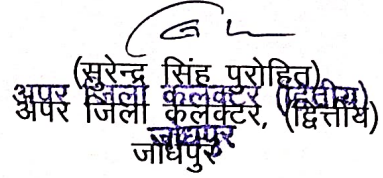 (सुरेन्द्र सिंह पुरोहित)
अपर जिला कलक्टर (द्वितीय)
अपर जिला कलेक्टर, (द्वितीय)
जोधपुर
जोधपुर